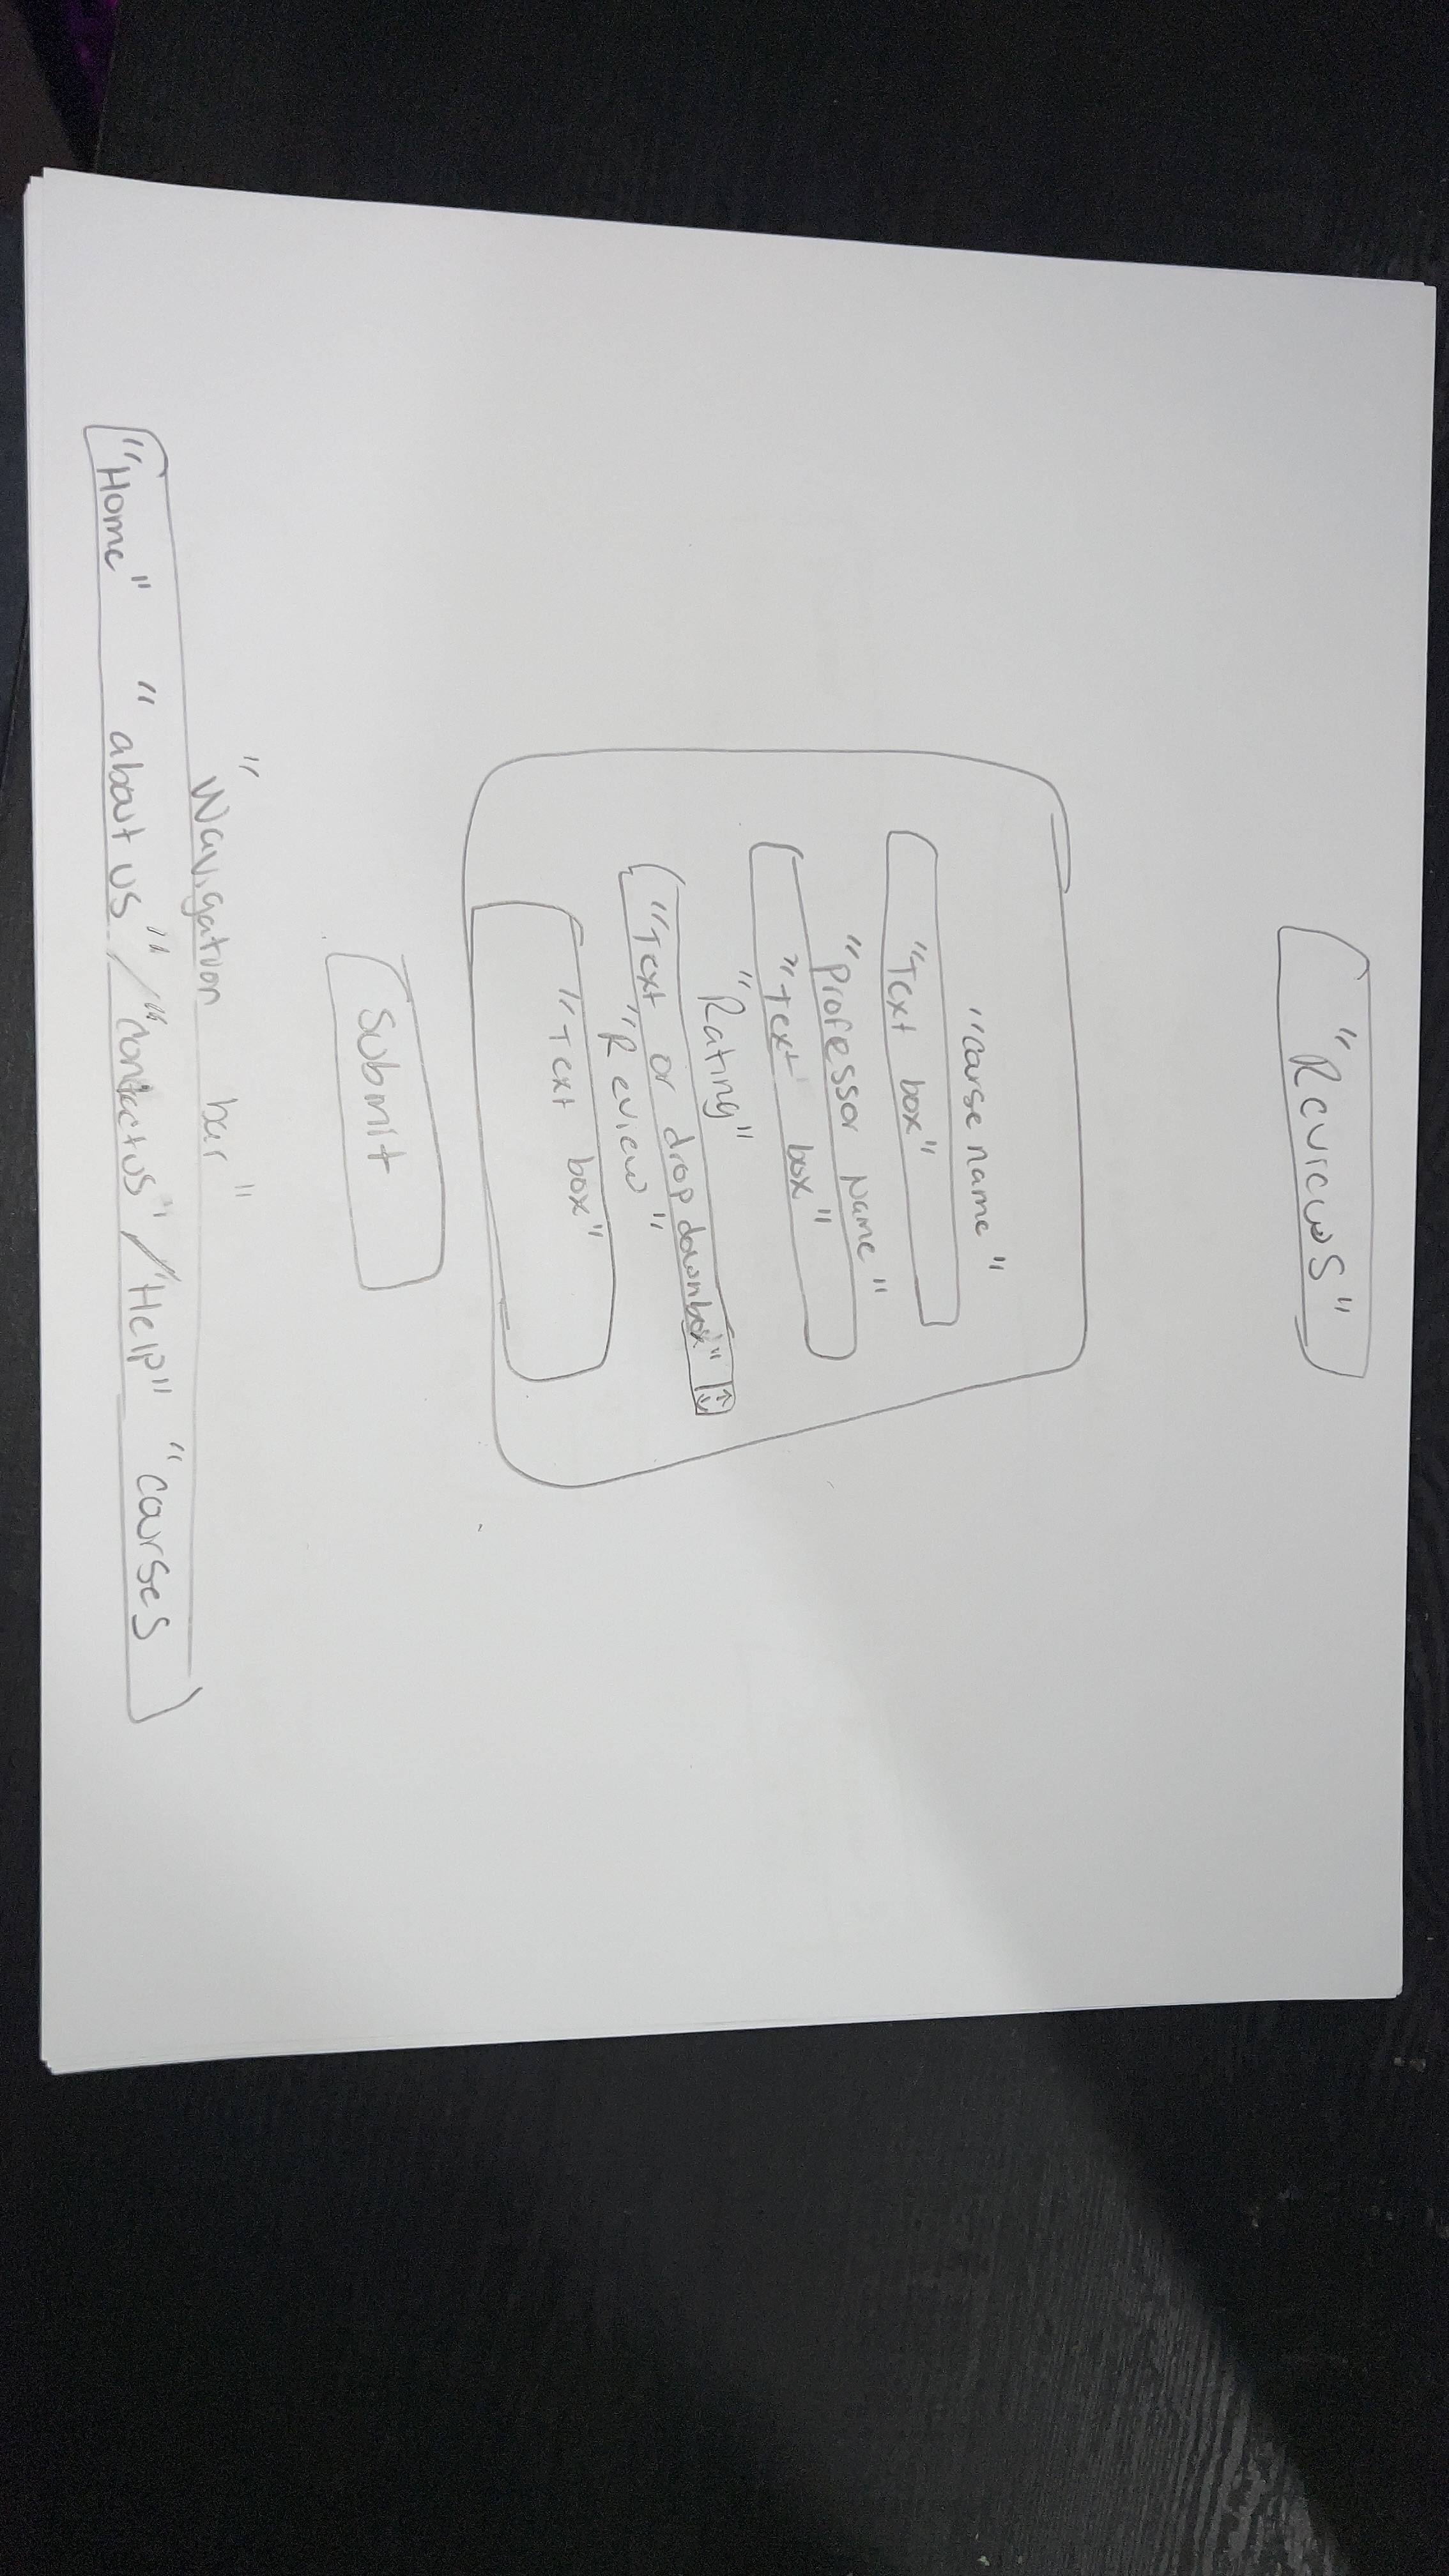 "Reviews"
"Course name"
"Text box"
"Professor Name"
"Text box"
"Rating"
"Text or drop downbox"
"Review"
"Text box"
Submit
"Navigation bar"
"Home" "about us" / "contact us" / "Help" "courses